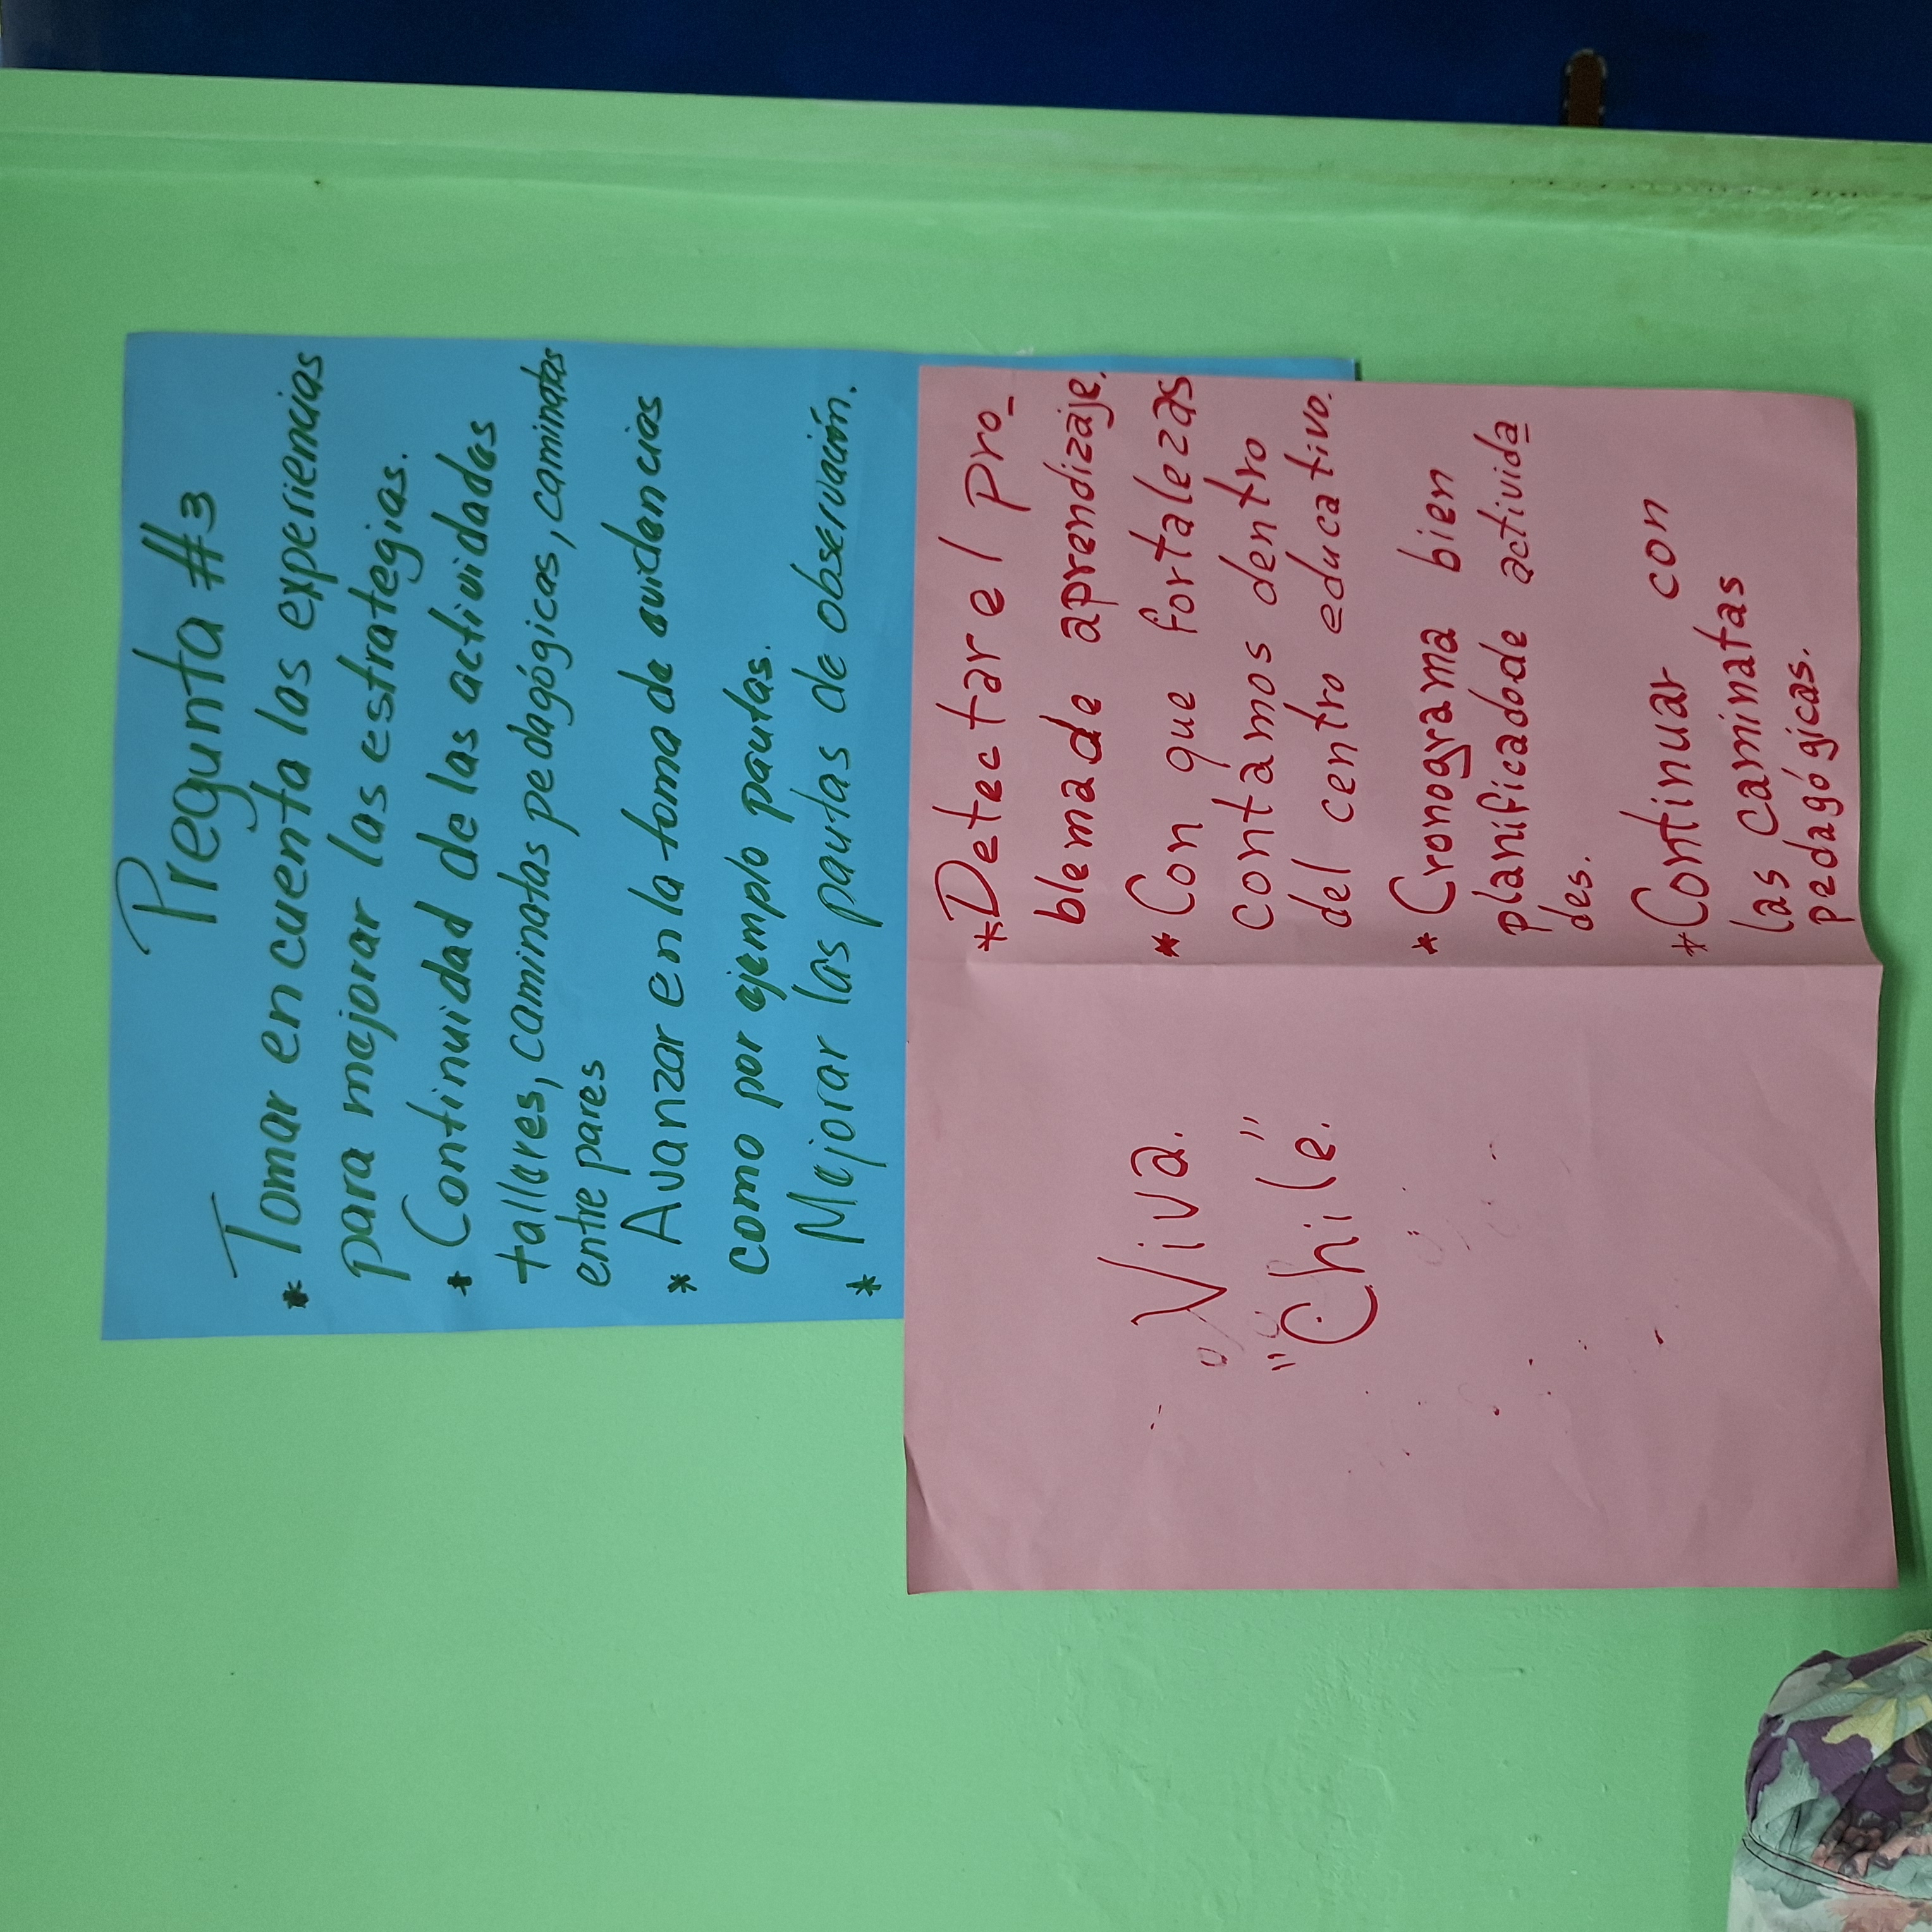 Pregunta #3
* Tomar en cuenta las experiencias
para mejorar las estrategias.
* Continuidad de las actividades
talleres, caminatas pedagógicas, caminatas
entre pares
* Avanzar en la toma de evidencias
como por ejemplo pautas.
* Mejorar las pautas de observación.
* Detectar el pro_
blema de aprendizaje.
* Con que fortalezas
contamos dentro
del centro educativo.
* Cronograma bien
planificado de activida
des.
* Continuar con
las caminatas
pedagógicas.
Viva.
"Chile".